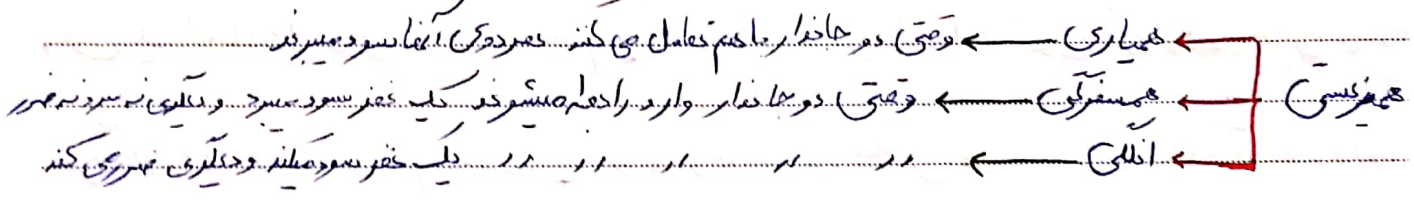 همیاری ← وقتی دو جاندار با هم تعامل می کنند هردوی آنها سود میبرند
همزیستی همسفرگی ← وقتی دو جاندار وارد رابطه میشوند یک نفر سود میبرد و دیگری نه سود نه ضرر
انگلی ← 〃 〃 〃 〃 〃 〃 یک نفر سود میکند و دیگری ضرر می کند